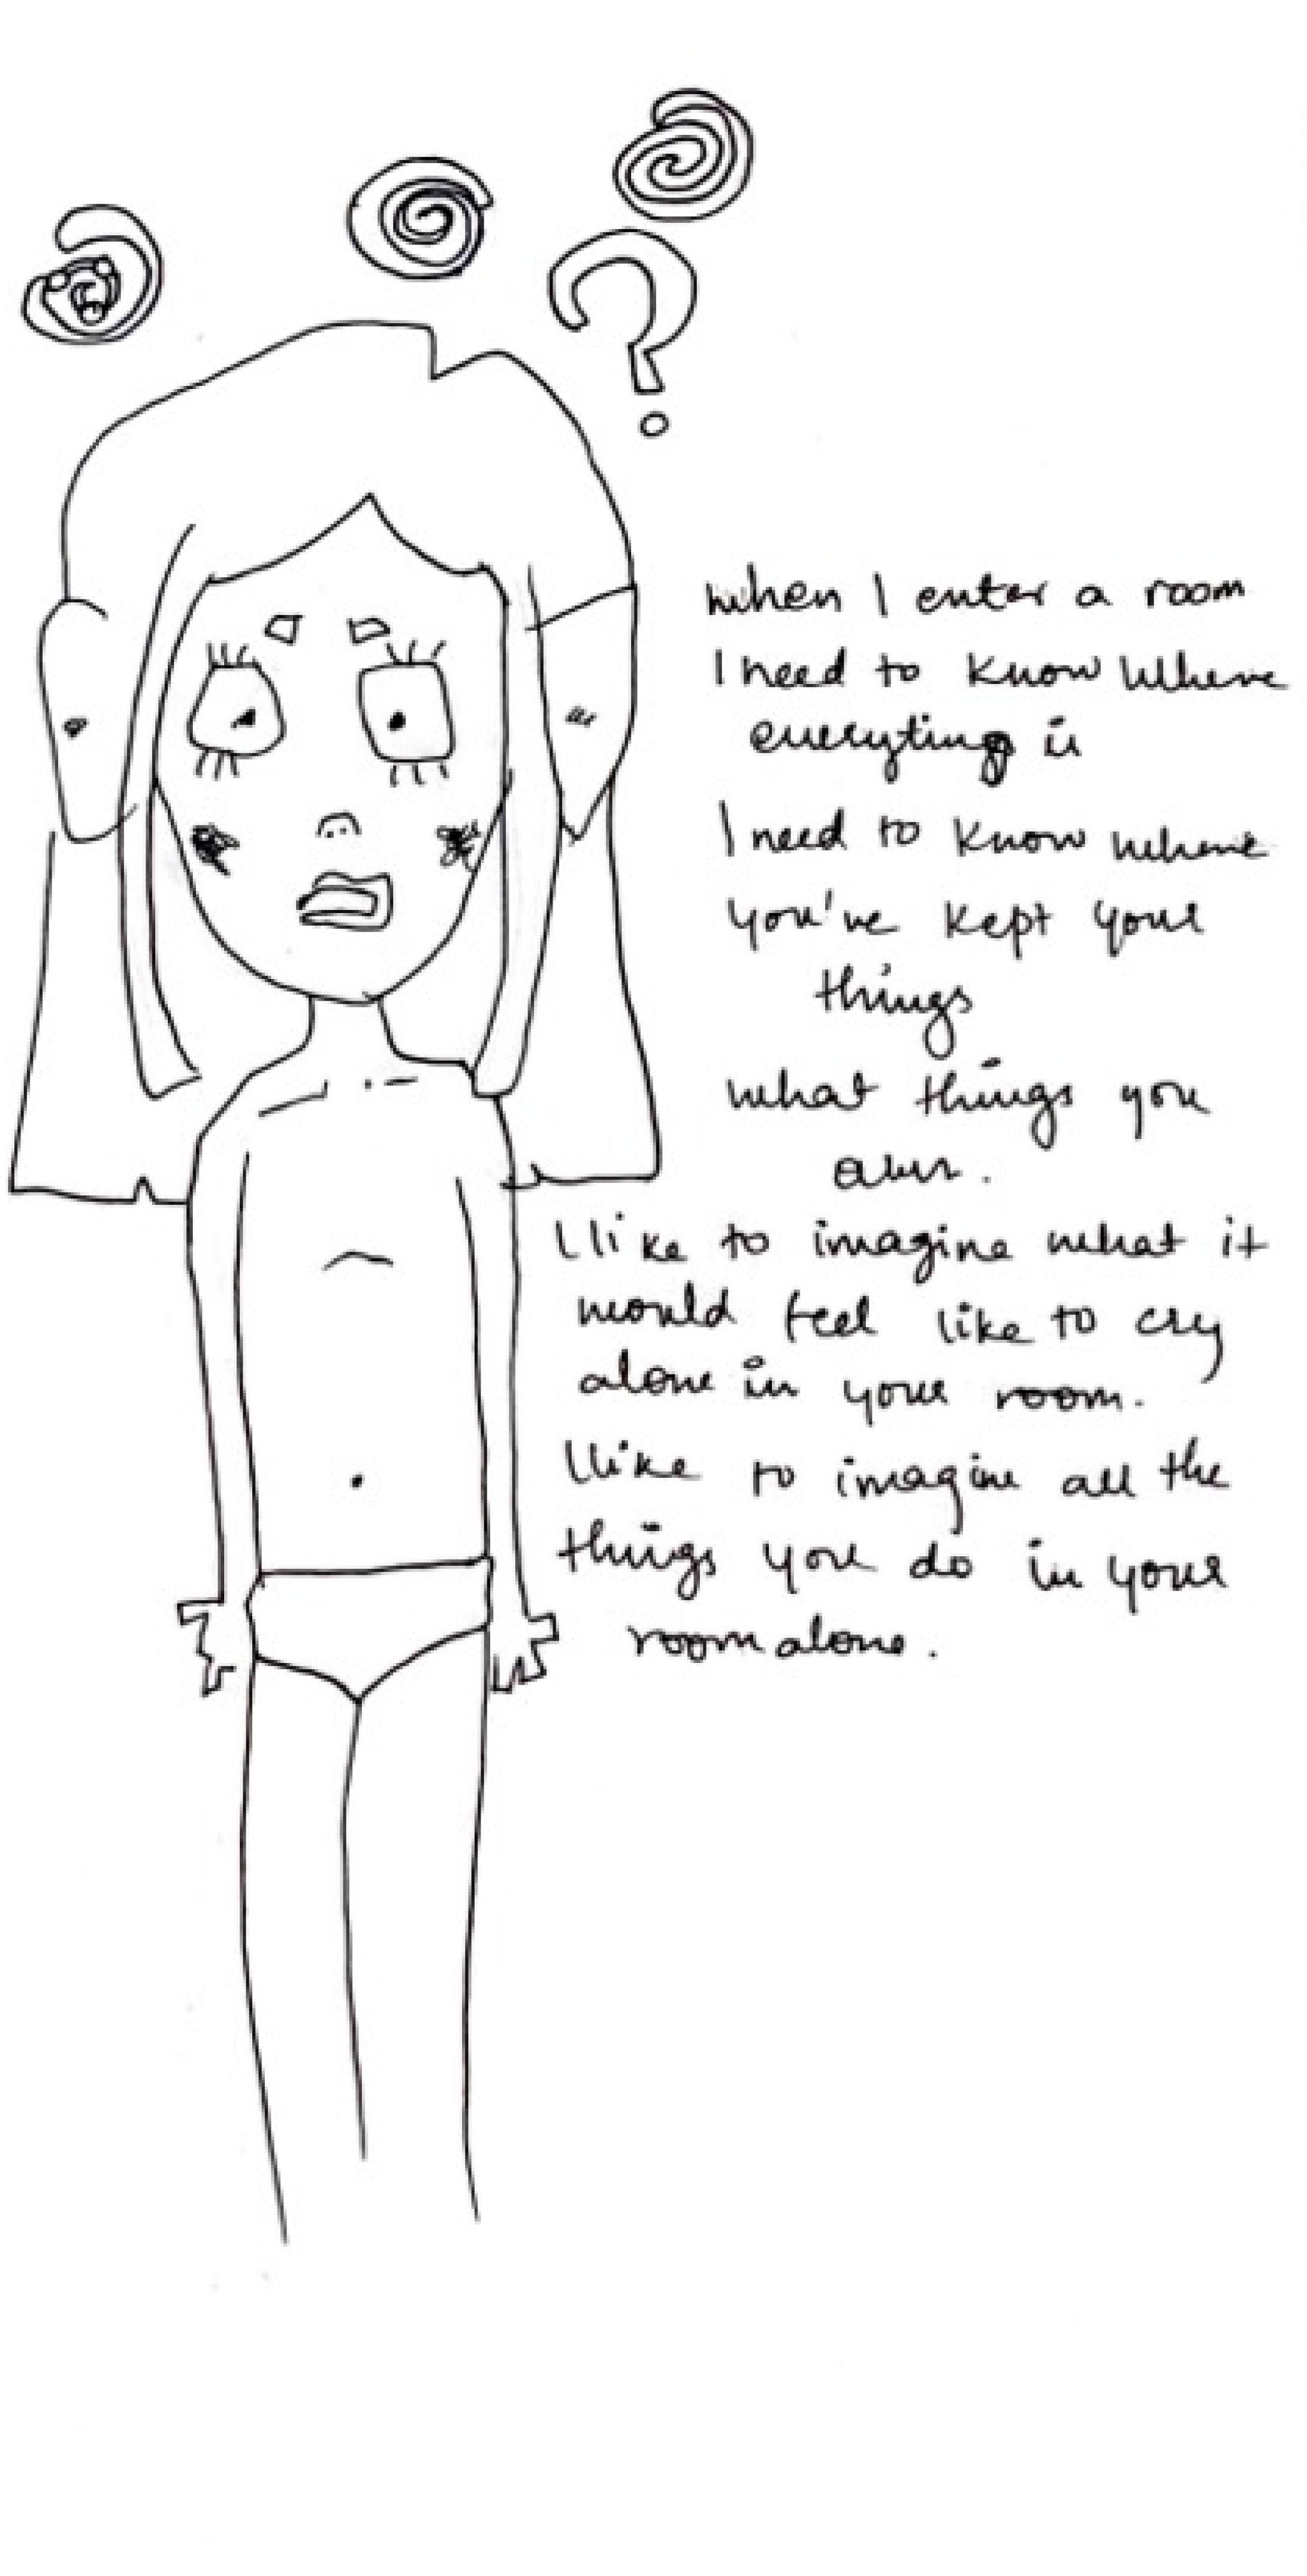 when I enter a room
I need to know where
everyting is
I need to know where
you've kept your
things
what things you
I like to imagine what it
would feel like to cry
alone in your room.
I like to imagine all the
things you do in your
room alone.
?